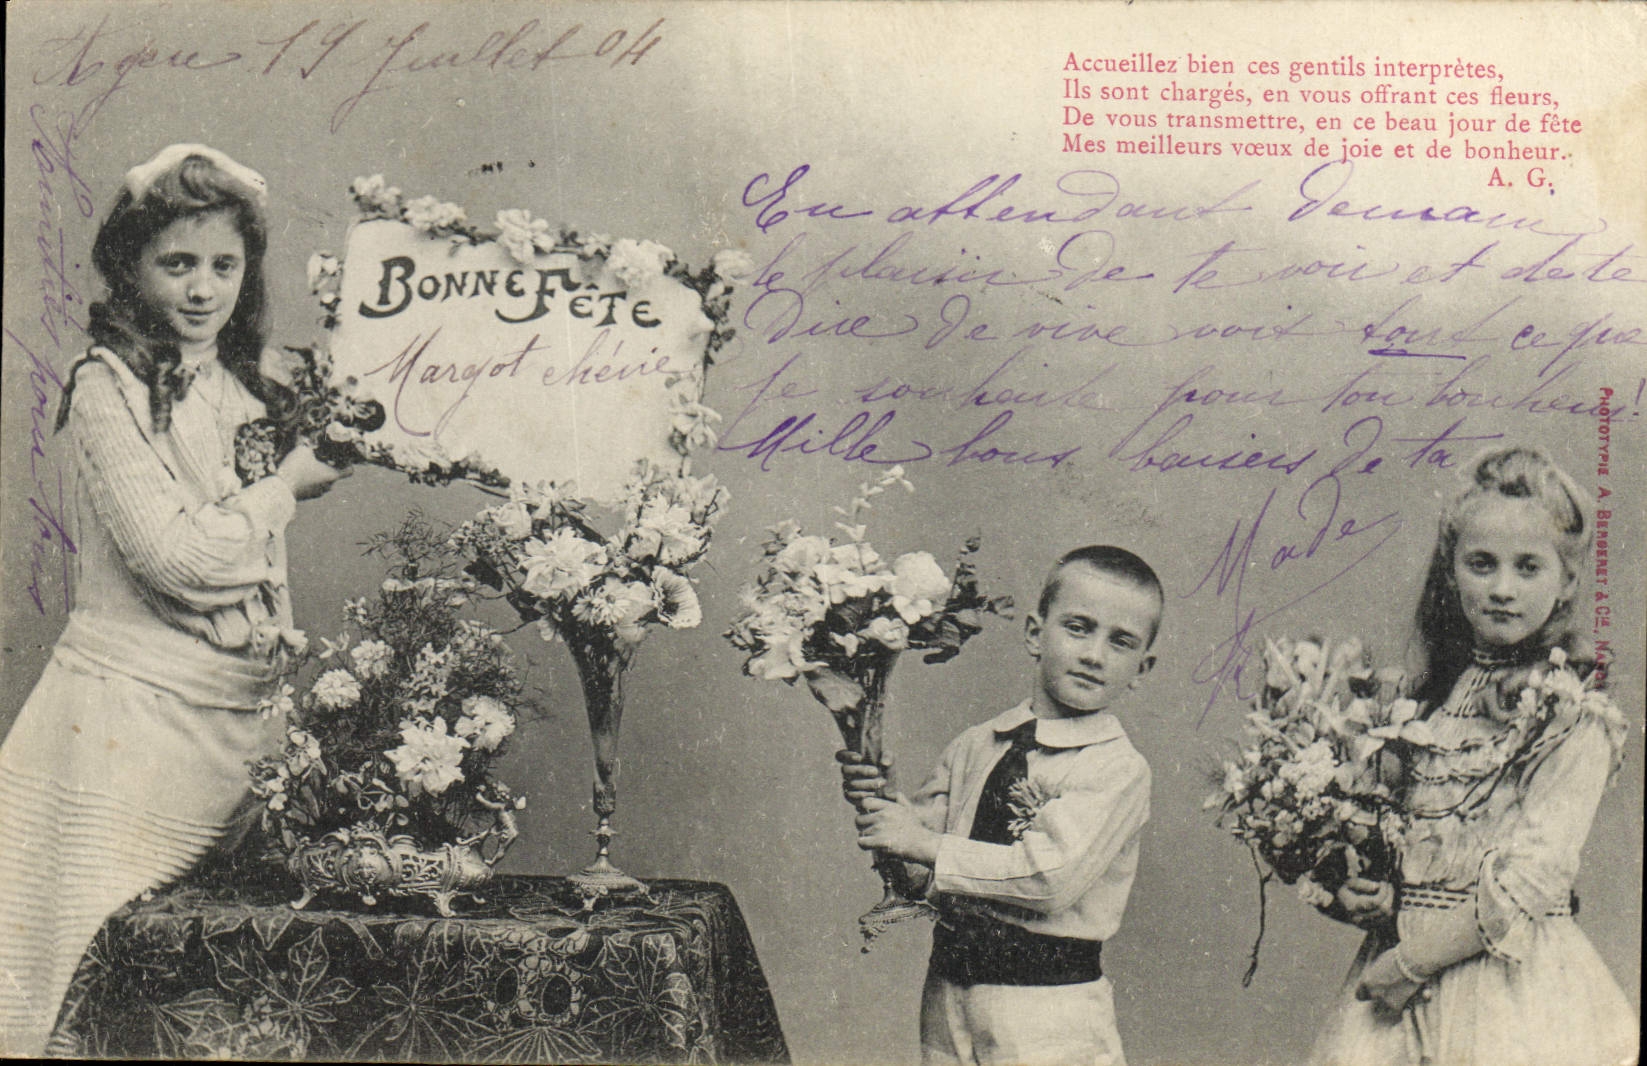 Agen 19 Juillet 04
Accueillez bien ces gentils interprètes,
Ils sont chargés, en vous offrant ces fleurs,
De vous transmettre, en ce beau jour de fête
Mes meilleurs vœux de joie et de bonheur.
A. G.
BONNE FÊTE
Margot chérie
En attendant demain
le plaisir de te voir et de te
dire de vive voix tout ce que
je souhaite pour ton bonheur!
Mille bons baisers de ta
Made
Amitiés pour tous
PHOTOTYPIE A. BERGERET & Cie, NANCY